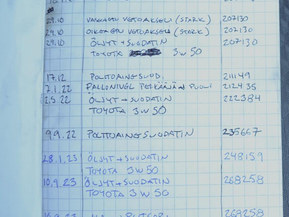 29.10 VASEMMAN VETOAKSELI (STARK) 207130
29.10 OIKEAN VETOAKSELI (STARK) 207130
29.10 ÖLJYT + SUODATIN 207130
TOYOTA 5W50
17.12 POLTTOAINESUOD. 211149
7.1.22 PALLONIVEL 212435
2.5.22 ÖLJYT + SUODATIN 222384
TOYOTA 5W50
9.9.22 POLTTOAINESUODATIN 235667
28.1.23 ÖLJYT + SUODATIN 248159
TOYOTA 5W50
10.9.23 ÖLJYT + SUODATIN 268258
TOYOTA 5W50
268258